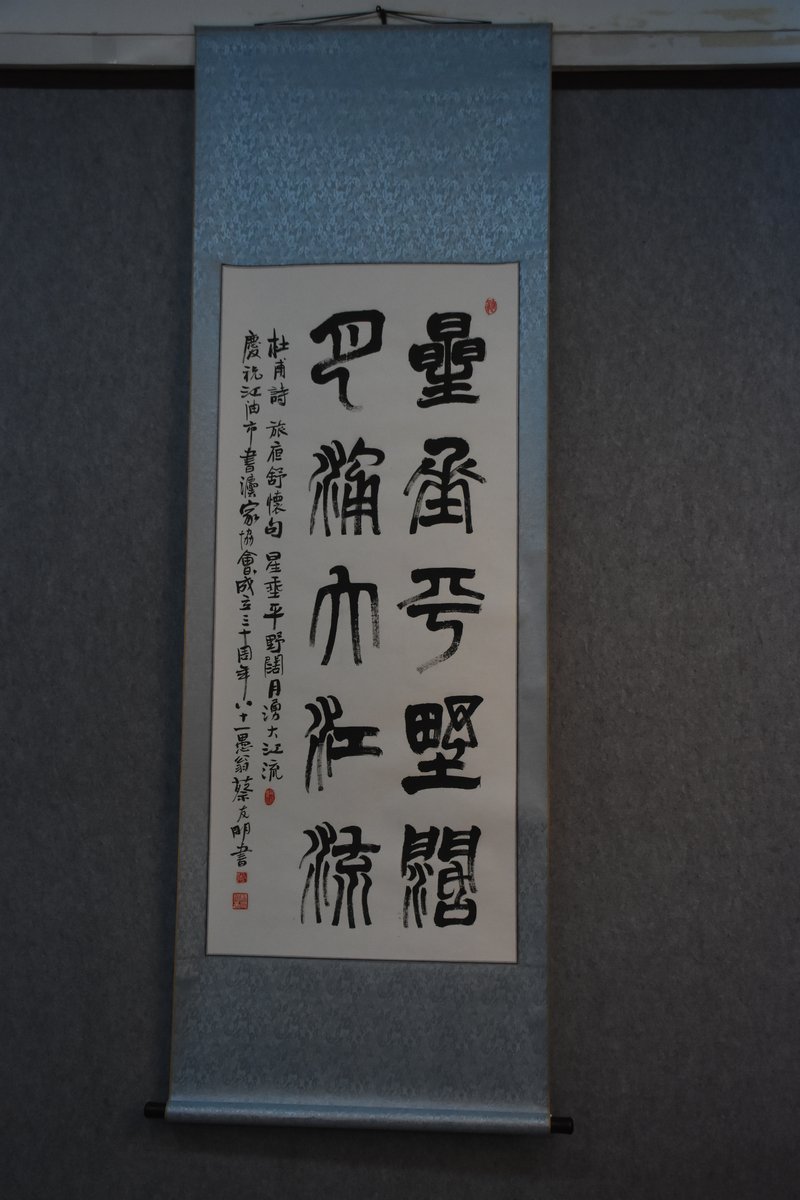 星垂平野闊
月涌大江流
杜甫詩 旅夜舒懷句 星垂平野闊月湧大江流
慶祝江油市書法家協會成立三十周年八十一愚翁蔡友明書